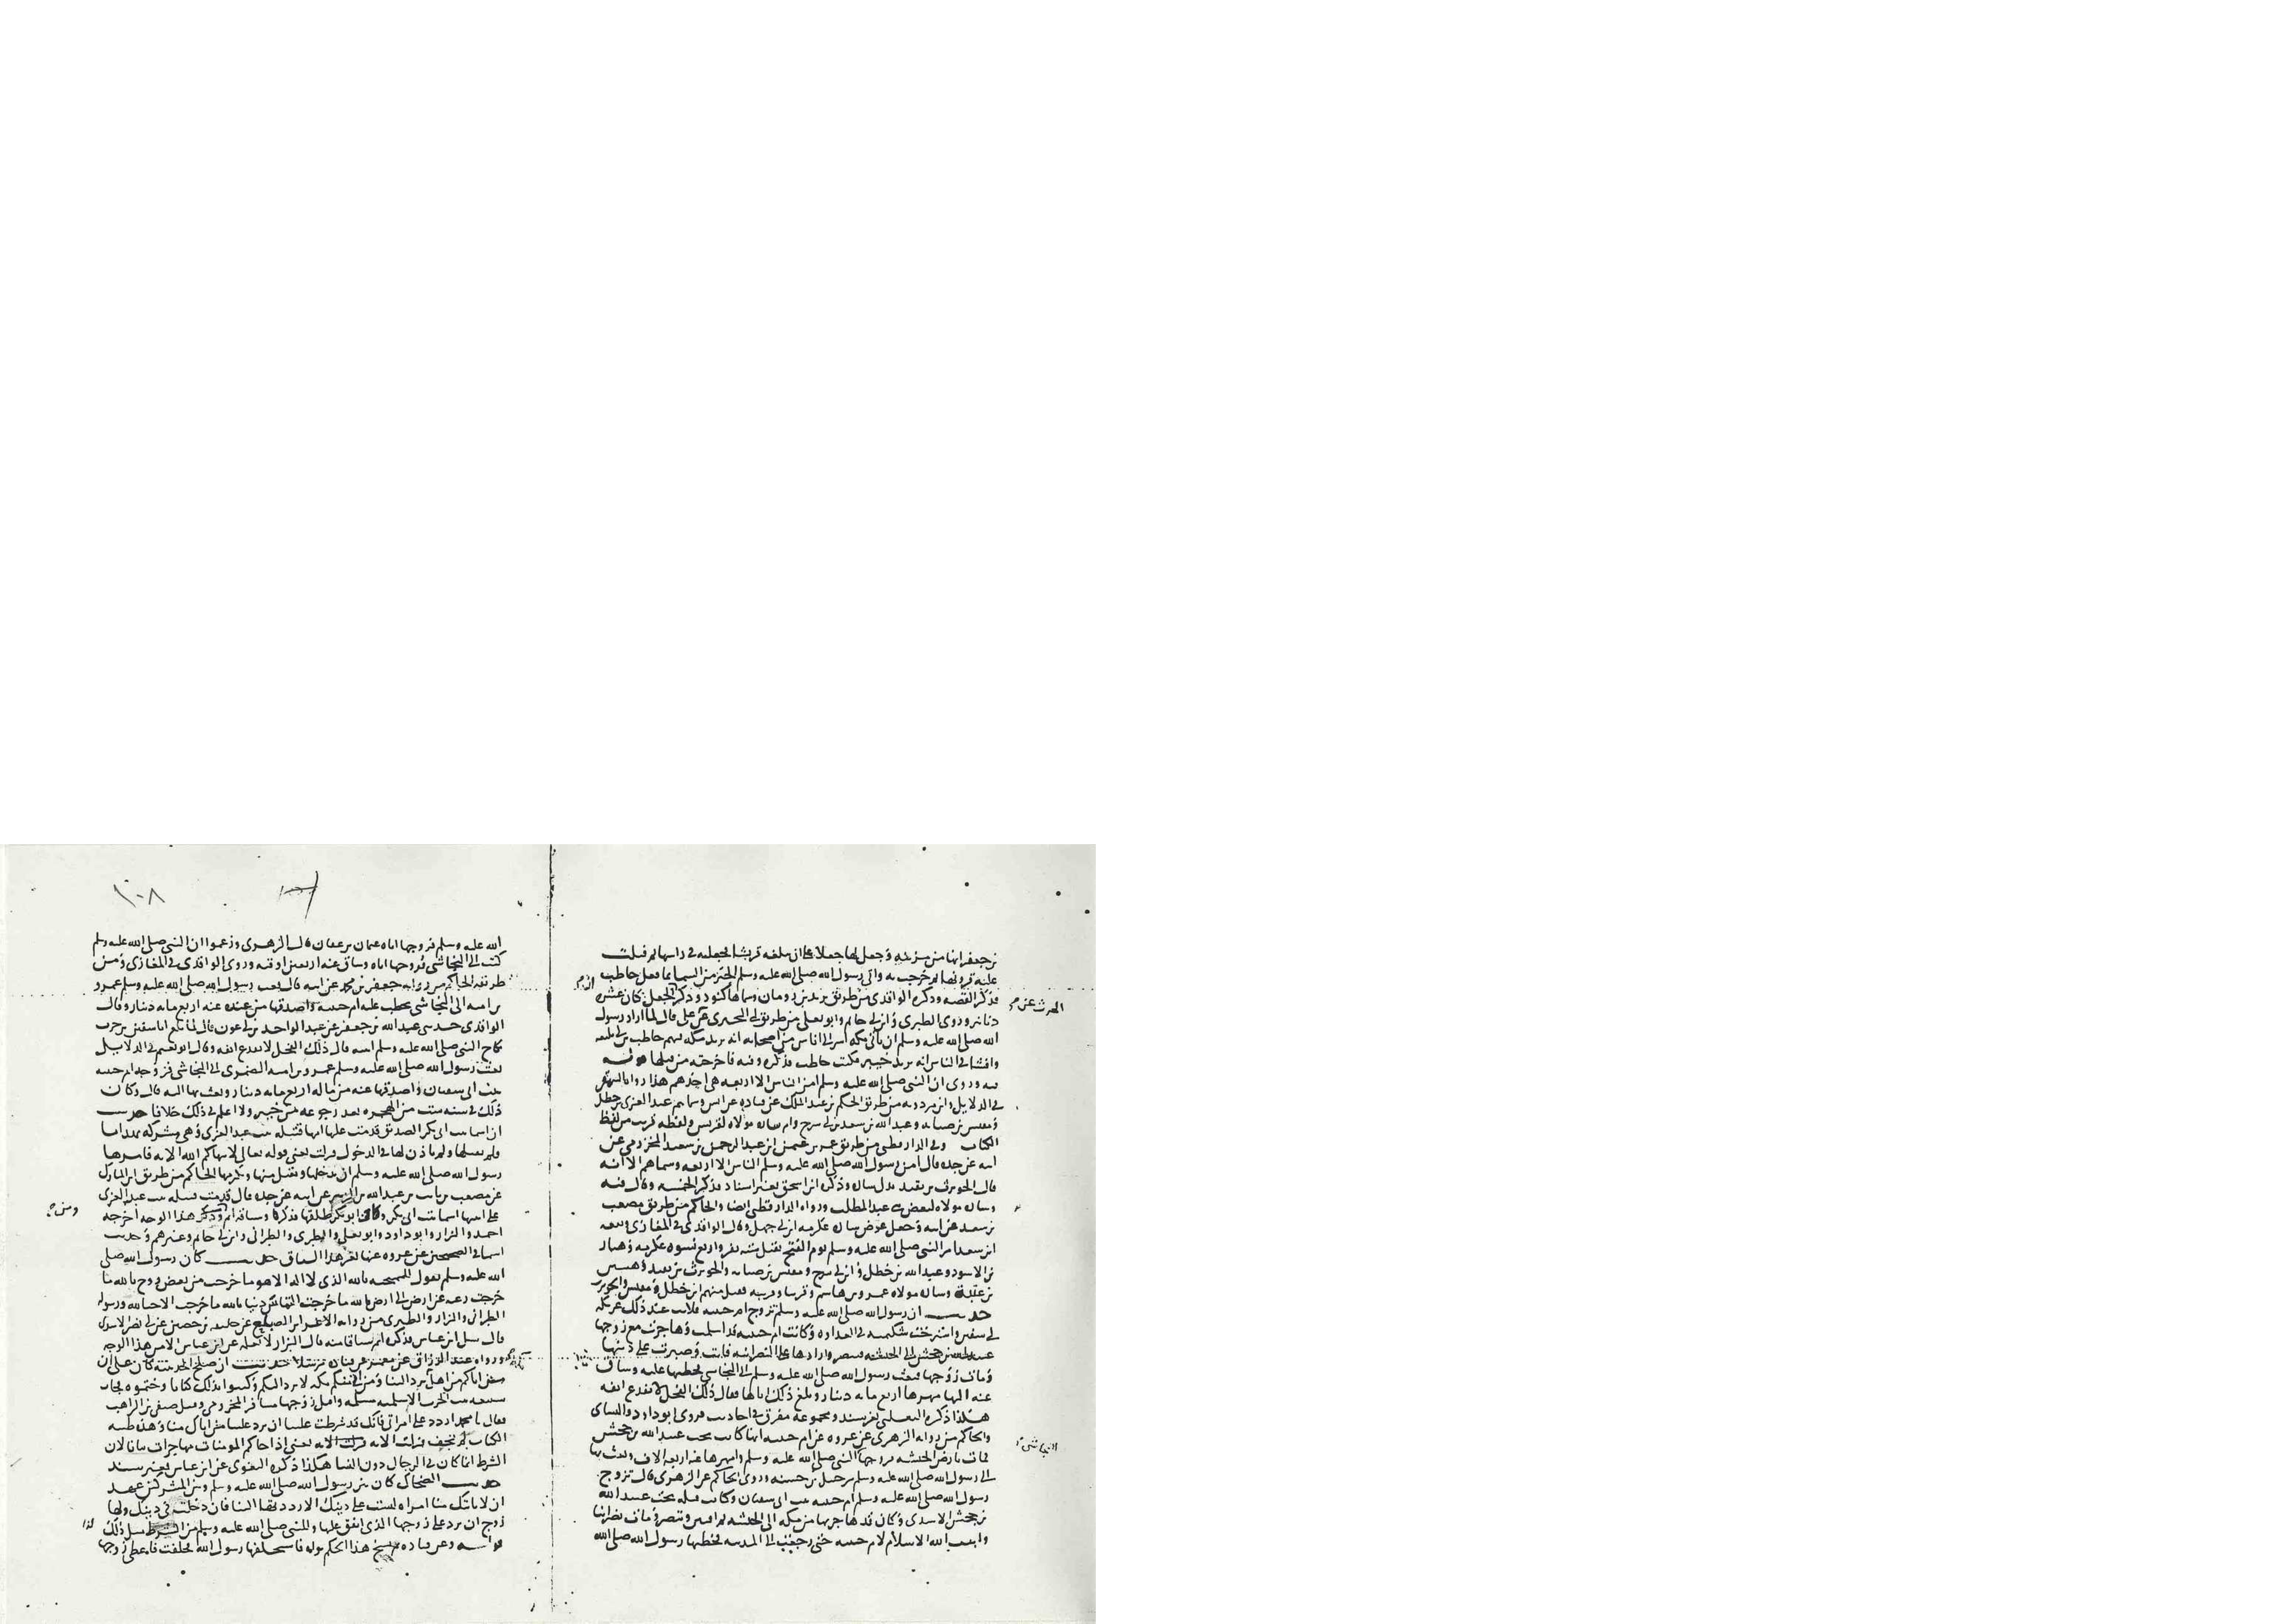 بن جعفر انها من مزينة وجعل لها جعلا على ان تبلغه قريشا فجعلته في راسها ثم فتلت
عليه قرونها ثم خرجت به واتى رسول الله صلى الله عليه وسلم الخبر من السما بما فعل حاطب
فذكر القصه وذكره الواقدي من طريق يزيد بن رومان وسماها كنود وذكر ان الجعل كان عشره
الحرث عن
دنانير وروى الطبري وابن ابي حاتم وابو يعلى من طريق ابي البختري عن علي قال لما اراد رسول
الله صلى الله عليه وسلم ان ياتي مكه اسر الى اناس من اصحابه انه يريد مكه منهم حاطب بن ابي بلتعه
وافشا في الناس انه يريد خيبر فكتب حاطب فذكره وفيه فاخرجته من
وروى ان النبي صلى الله عليه وسلم امن الناس الا اربعه هي احدهم هذا رواه البيهقي
في الدلايل وابن مردويه من طريق الحكم بن عبد الملك عن قتاده عن انس وسماهم عبد العزى بن خطل
ومقيس بن صبابه وعبد الله بن سعد بن ابي سرح وام ساره مولاه لقريش ولفظه قريب من لفظ
الكتاب وفي الدارقطني من طريق عمر بن عثمن ابن عبد الرحمن بن سعيد المخزومي عن
ابيه عن جده قال امن رسول الله صلى الله عليه وسلم الناس الا اربعه وسماهم الا انه
قال الحويرث بن نقيد بدل ساره وذكره ابن اسحق بغير اسناد فذكر الخمسه وقال فيه
وساره مولاه لبعض بني عبد المطلب ورواه الدارقطني ايضا والحاكم من طريق مصعب
بن سعد عن ابيه وجعل عوض ساره عكرمه ابن ابي جهل وقال الواقدي في المغازي وتبعه
ابن سعد امر النبي صلى الله عليه وسلم يوم الفتح بقتل سته نفر واربع نسوه عكرمه وهبار
بن الاسود وعبد الله بن خطل وابن ابي سرح ومقيس بن صبابه والحويرث بن نقيد وهند بنت
عتبة وساره مولاه عمرو بن هاشم وقرينا وقريبه فقتل منهم ابن خطل ومقيس والحويرث
حديث ان رسول الله صلى الله عليه وسلم تزوج ام حبيبه فلانت عند ذلك عريكه
ابي سفين واسترخت شكيمته في العداوه وكانت ام حبيبه قد اسلمت وهاجرت مع زوجها
عبيد الله بن جحش الى الحبشه فتنصر وارادها على النصرانيه فابت وصبرت على دينها
ومات زوجها فبعث رسول الله صلى الله عليه وسلم الى النجاشي فخطبها عليه وساق
عنه اليها مهرها اربع مايه دينار وبلغ ذلك اباها فقال ذلك الفحل لا يقدع انفه
هكذا ذكره الثعلبي بغير سند ومجموعه مفرق في احاديث فروى ابو داود والنساي
والحاكم من روايه الزهري عن عروه عن ام حبيبه انها كانت تحت عبيد الله بن جحش
النجاشي
فمات بارض الحبشه فزوجها النبي صلى الله عليه وسلم وامهرها عنه اربعه الاف وبعث بها
الى رسول الله صلى الله عليه وسلم مع شرحبيل بن حسنه وروى الحاكم عن الزهري قال تزوج
رسول الله صلى الله عليه وسلم ام حبيبه بنت ابي سفيان وكانت قبله تحت عبيد الله
بن جحش الاسدي وكان قد هاجر بها من مكه الى الحبشه ثم افتتن وتنصر ومات نصرانيا
واثبت الله الاسلام لام حبيبه حتى رجعت الى المدينه فخطبها رسول الله صلى الله
١٠٨
الله عليه وسلم فزوجها اياه عثمان بن عفان قال الزهري وزعموا ان النبي صلى الله عليه وسلم
كتب الى النجاشي فزوجها اياه وساق عنه اربعين اوقيه وروى الواقدي في المغازي ومن
طريقه الحاكم من روايه جعفر بن محمد عن ابيه قال بعث رسول الله صلى الله عليه وسلم عمرو
بن اميه الى النجاشي يخطب عليه ام حبيبه واصدقها من عنده عنه اربع مايه دينار وقال
الواقدي حدثني عبد الله بن جعفر عن عبد الواحد بن ابي عون قال لما بلغ ابا سفين بن حرب
نكاح النبي صلى الله عليه وسلم ابنته قال ذلك الفحل لا يقدع انفه وقال ابو نعيم في الدلايل
بعث رسول الله صلى الله عليه وسلم عمرو بن اميه الضمري الى النجاشي فزوجه ام حبيبه
بنت ابي سفيان واصدقها عنه من ماله اربع مايه دينار وبعث بها اليه قال وكان
ذلك في سنه ست من الهجره بعد رجوعه من خيبر ولا اعلم في ذلك خلافا حديث
ان اسما بنت ابي بكر الصديق قدمت عليها امها قتيله بنت عبد العزى وهي مشركه بهدايا
فلم تقبلها ولم تاذن لها في الدخول فنزلت يعني قوله تعالى لا ينهاكم الله الايه فامرها
رسول الله صلى الله عليه وسلم ان تدخلها وتقبل منها وتكرمها الحاكم من طريق ابن المبارك
عن مصعب بن ثابت بن عبد الله بن الزبير عن ابيه عن جده قال قدمت قتيله بنت عبد العزى
ومن
على ابنتها اسما بنت ابي بكر وكان ابو بكر طلقها فذكره وساقه اتم وذكر هذا الوجه اخرجه
احمد والبزار وابو داود وابو يعلى والطبري والطبراني وابن ابي حاتم وغيرهم وحديث
اسما في الصحيحين عن عروه عنها بغير هذا السياق حديث كان رسول الله صلى
الله عليه وسلم يقول للممتحنه بالله الذي لا اله الا هو ما خرجت من بغض زوج بالله ما
خرجت رغبه عن ارض الى ارض بالله ما خرجت التماس دنيا بالله ما خرجت الا حبا لله ورسوله
الطبراني والبزار والطبري من روايه الاغر ابن الصباح عن خليفه بن حصين عن ابي نصر الاسدي
قال سيل ابن عباس فذكره اتم سياقا منه قال البزار لا نعلمه عن ابن عباس الا من هذا الوجه
ورواه عبد الرزاق عن معمر عن قتاده مرسلا حديث ان صلح الحديبيه كان على ان
من اتاكم من اهل مكه يرد الينا ومن اتى منكم مكه لا يرد اليكم وكتبوا بذلك كتابا وختموه فجات
سبيعه بنت الحرث الاسلميه مسلمه واقبل زوجها مسافر المخزومي وقيل صيفي بن الراهب
فقال يا محمد اردد علي امراتي فانك قد شرطت علينا ان ترد علينا من اتاك منا وهذه طينه
الكتاب لم تجف فنزلت الايه يعني اذا جاكم المومنات مهاجرات بيانا لان
الشرط انما كان في الرجال دون النسا هكذا ذكره البغوي عن ابن عباس بغير سند
حديث الضحاك كان بين رسول الله صلى الله عليه وسلم وبين المشركين عهد
ان لا تاتيك منا امراه ليست على دينك الا رددتها الينا فان دخلت في دينك ولها
زوج ان ترد على زوجها الذي انفق عليها وللنبي صلى الله عليه وسلم من الشرط مثل ذلك
وعن قتاده نسخ هذا الحكم قوله فاستحلفها رسول الله فحلفت فاعطى زوجها